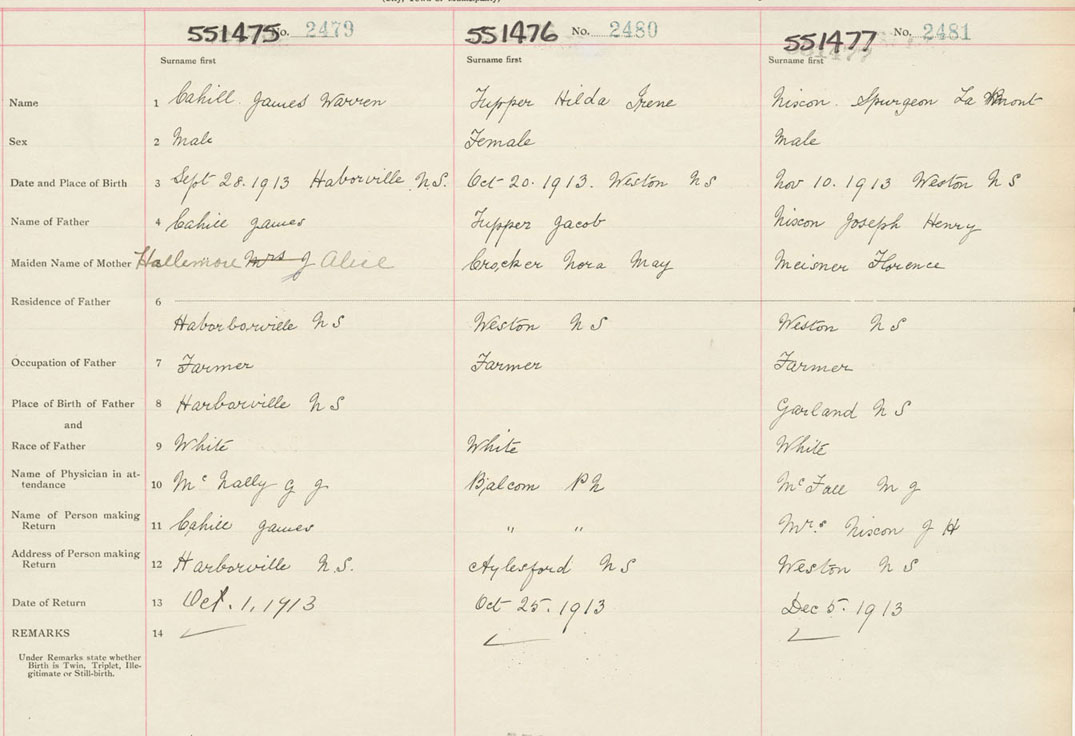 551475 No. 2479 551476 No. 2480 551477 No. 2481
Surname first Surname first Surname first
Name 1 Cahill James Warren Tupper Hilda Irene Nixon. Spurgeon La Mont
Sex 2 Male Female Male
Date and Place of Birth 3 Sept 28. 1913 Haborville N.S. Oct 20. 1913. Weston N S Nov 10. 1913 Weston N S
Name of Father 4 Cahill James Tupper Jacob Nixon Joseph Henry
Maiden Name of Mother Hallemore Mrs J Alice Crocker Nora May Meisner Florence
Residence of Father 6
Haborborville N S Weston N S Weston N S
Occupation of Father 7 Farmer Farmer Farmer
Place of Birth of Father 8 Harborville N S Garland N S
and
Race of Father 9 White White White
Name of Physician in at-
tendance 10 Mc Nally G J Balcom P N McFall M G
Name of Person making
Return 11 Cahill James " " Mrs Nixon J H
Address of Person making
Return 12 Harborville N.S. Aylesford N S Weston N S
Date of Return 13 Oct. 1, 1913 Oct 25. 1913 Dec 5. 1913
REMARKS 14
Under Remarks state whether
Birth is Twin, Triplet, Ille-
gitimate or Still-birth.